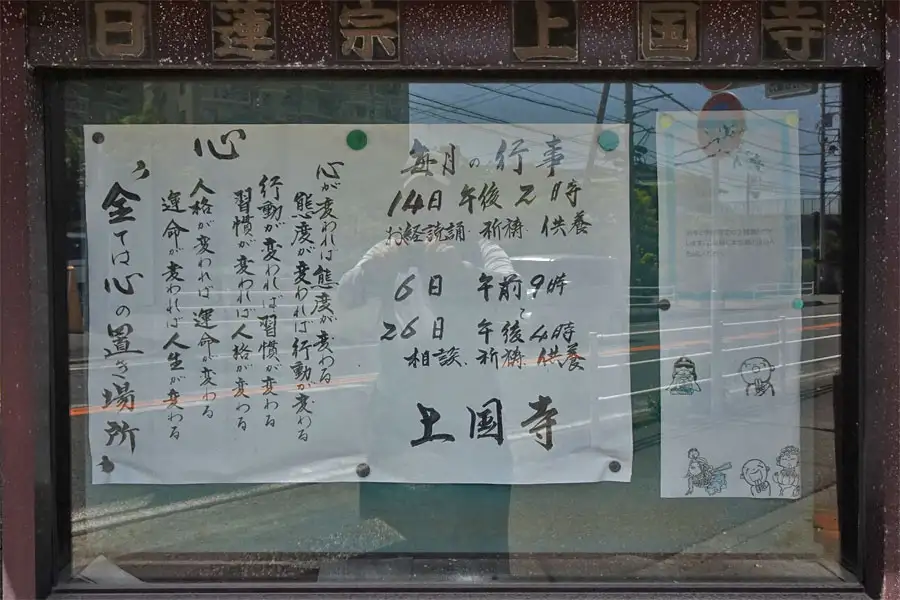 日蓮宗 上国寺
心
心が変われば態度が変わる
態度が変われば行動が変わる
行動が変われば習慣が変わる
習慣が変われば人格が変わる
人格が変われば運命が変わる
運命が変われば人生が変わる
「全ては心の置き場所」
毎月の行事
14日 午後2時
お経読誦、祈祷、供養
6日 午前9時
26日 午後4時
相談、祈祷、供養
上国寺